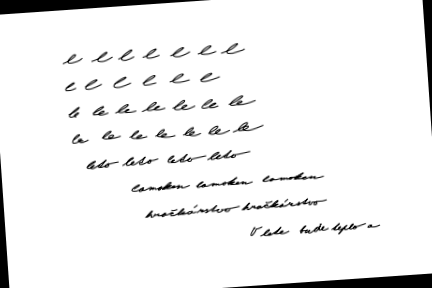 e e e e e e e
e e e e e e
le le le le le le le
le le le le le le le
leto leto leto leto
lomoken lomoken lomoken
hračkárstvo hračkárstvo
V lete bude teplo a